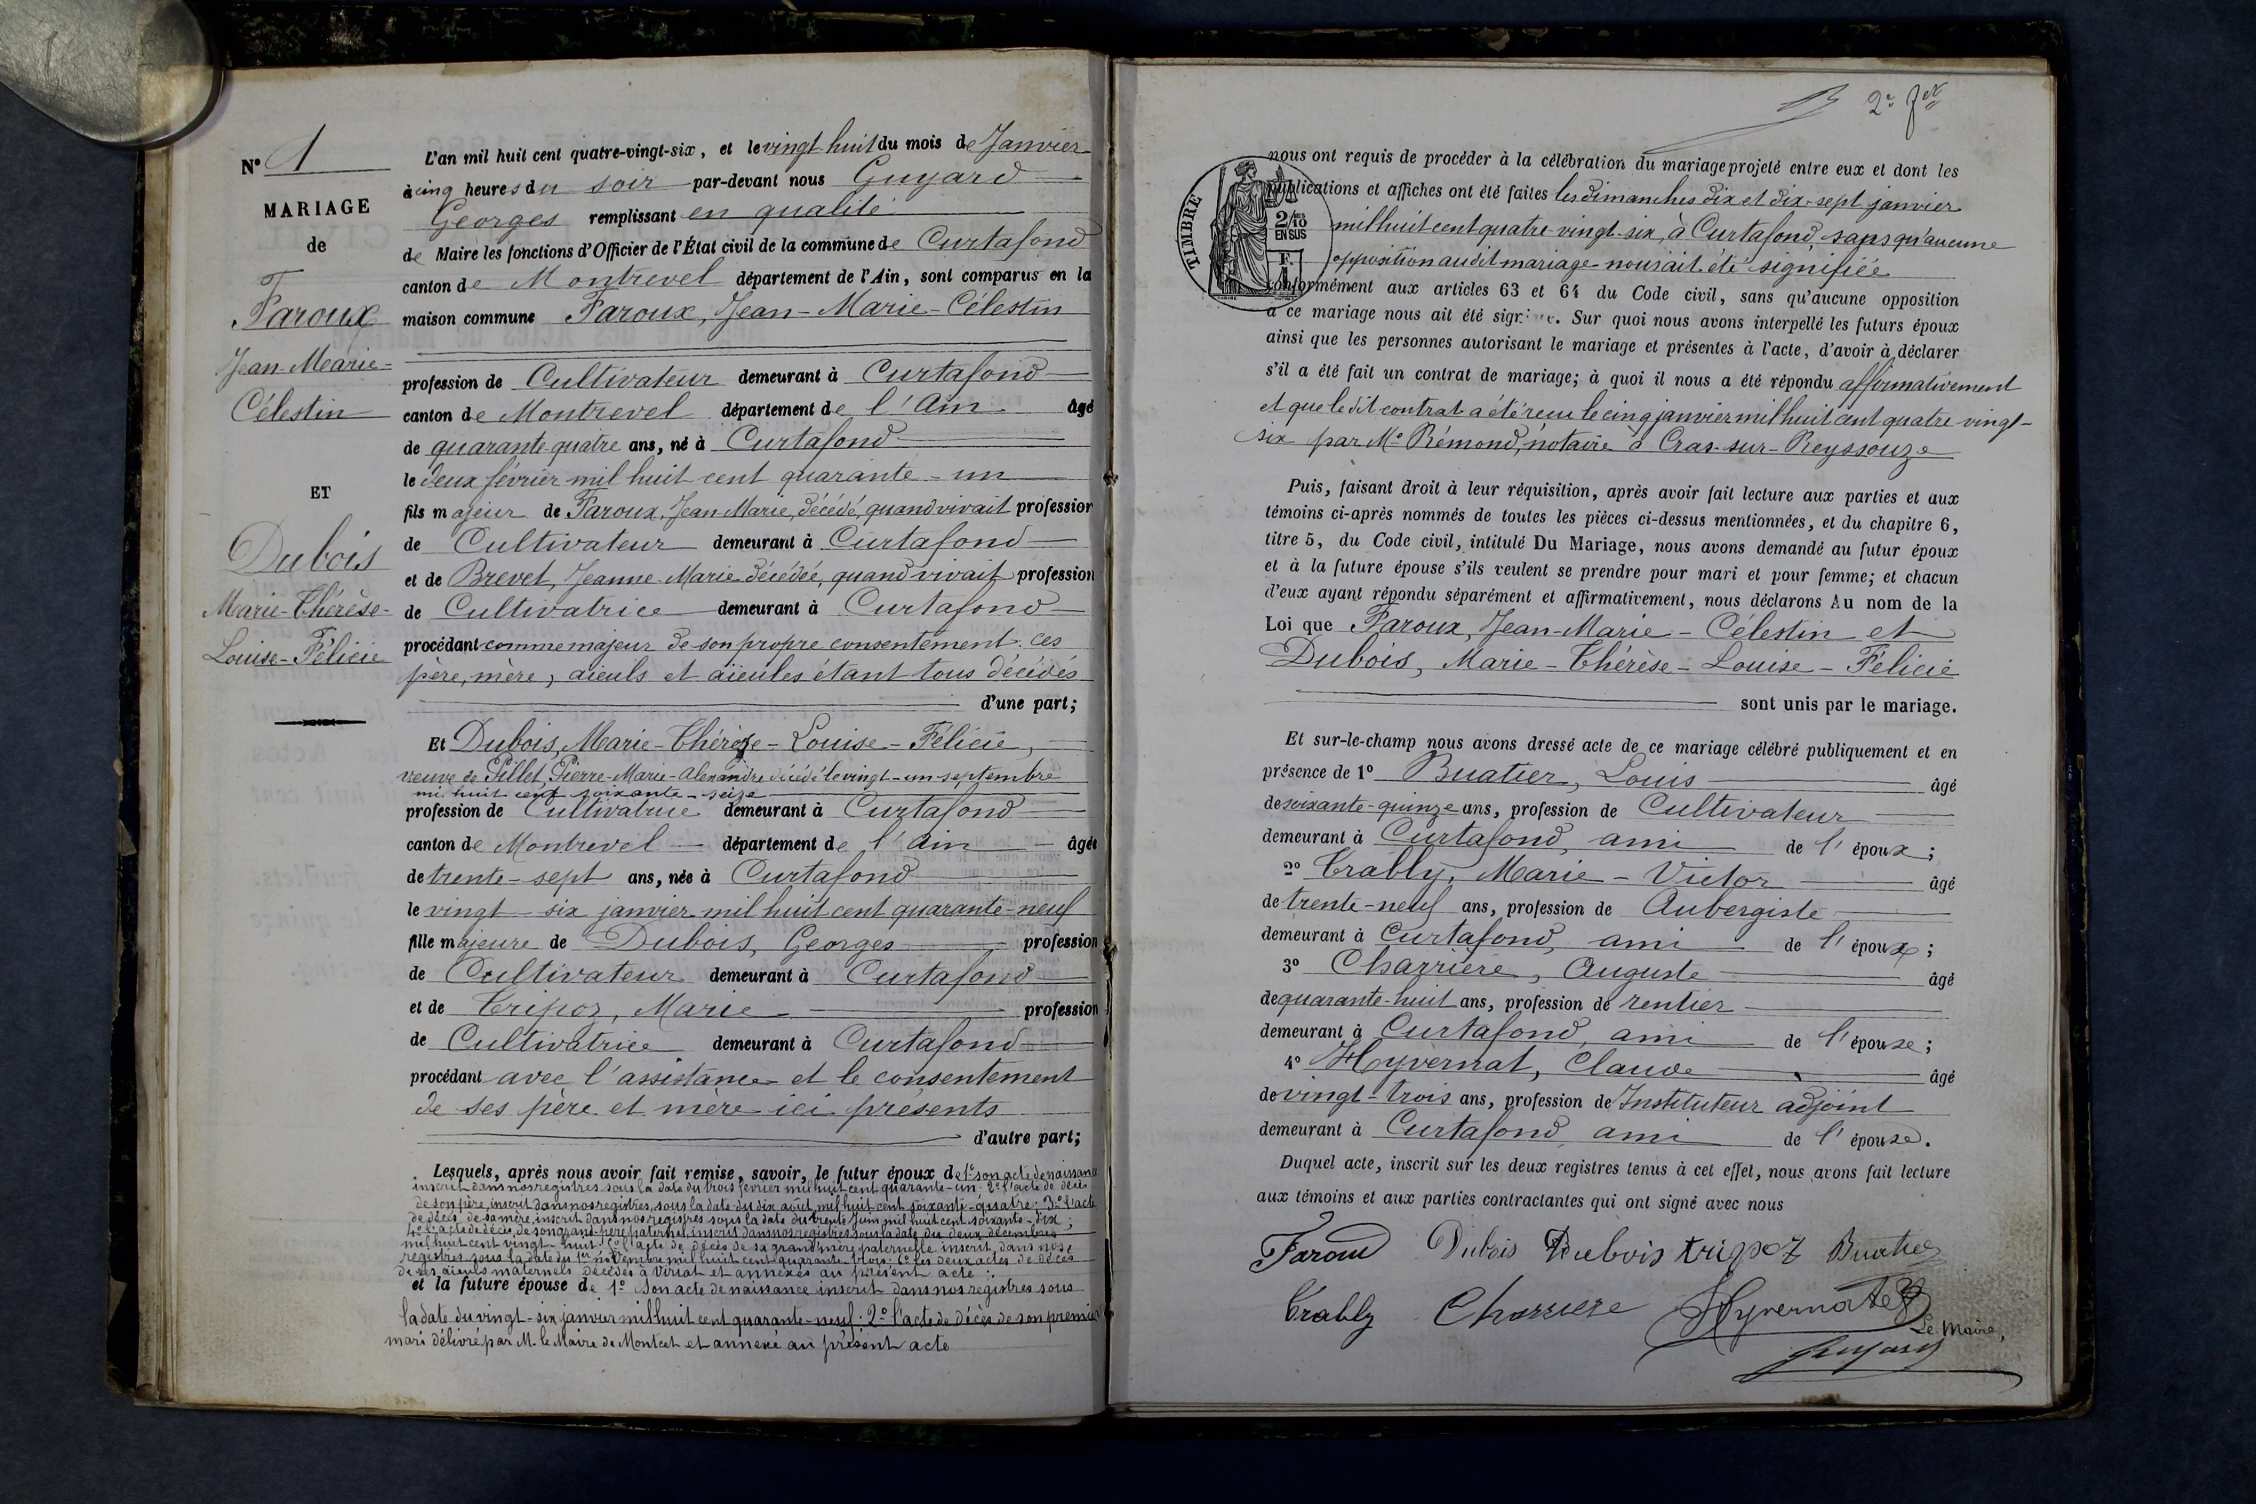 N° 1
MARIAGE
de
Faroux
Jean-Marie-
Célestin
ET
Dubois
Marie-Thérèse-
Louise-Félicie
L'an mil huit cent quatre-vingt-six, et le vingt huit du mois de Janvier
à cinq heures du soir par-devant nous Guyard
Georges remplissant en qualité
de Maire les fonctions d'Officier de l'État civil de la commune de Curtafond
canton de Montrevel département de l'Ain, sont comparus en la
maison commune Faroux, Jean-Marie-Célestin
profession de Cultivateur demeurant à Curtafond
canton de Montrevel département de l'Ain âgé
de quarante-quatre ans, né à Curtafond
le deux février mil huit cent quarante-un
fils majeur de Faroux, Jean-Marie, décédé, quand vivait profession
de Cultivateur demeurant à Curtafond
et de Brevet, Jeanne-Marie décédée, quand vivait profession
de Cultivatrice demeurant à Curtafond
procédant comme majeur de son propre consentement ces
père, mère, aïeuls et aïeules étant tous décédés
d'une part;
Et Dubois, Marie-Thérèse-Louise-Félicie,
veuve de Pillet Pierre-Marie-Alexandre décédé le vingt-un septembre
mil huit cent soixante-seize
profession de Cultivatrice demeurant à Curtafond
canton de Montrevel département de l'Ain âgée
de trente-sept ans, née à Curtafond
le vingt-six janvier mil huit cent quarante-neuf
fille majeure de Dubois, Georges profession
de Cultivateur demeurant à Curtafond
et de Tripoz, Marie profession
de Cultivatrice demeurant à Curtafond
procédant avec l'assistance et le consentement
de ses père et mère ici présents
d'autre part;
Lesquels, après nous avoir fait remise, savoir, le futur époux de 1° son acte de naissance
inscrit dans nos registres sous la date du trois février mil huit cent quarante-un; 2° l'acte de décès
de son père, inscrit dans nos registres, sous la date du dix août mil huit cent soixante-quatre; 3° l'acte
de décès de sa mère, inscrit dans nos registres sous la date du trente juin mil huit cent soixante-dix;
4° l'acte de décès de son grand-père paternel, inscrit dans nos registres sous la date du deux décembre
mil huit cent vingt-huit; 5° l'acte de décès de sa grand'mère paternelle inscrit dans nos
registres sous la date du 1er novembre mil huit cent quarante-trois; 6° les deux actes de décès
de ses aïeuls maternels décédés à Viriat et annexés au présent acte;
et la future épouse de 1° Son acte de naissance inscrit dans nos registres sous
la date du vingt-six janvier mil huit cent quarante-neuf; 2° l'acte de décès de son premier
mari délivré par M. le Maire de Montcet et annexé au présent acte
2e
TIMBRE
2/10 EN SUS
F.
nous ont requis de procéder à la célébration du mariage projeté entre eux et dont les
publications et affiches ont été faites les dimanches dix et dix-sept janvier
mil huit cent quatre-vingt-six, à Curtafond, sans qu'aucune
opposition audit mariage nous ait été signifiée
conformément aux articles 63 et 64 du Code civil, sans qu'aucune opposition
à ce mariage nous ait été signifiée. Sur quoi nous avons interpellé les futurs époux
ainsi que les personnes autorisant le mariage et présentes à l'acte, d'avoir à déclarer
s'il a été fait un contrat de mariage; à quoi il nous a été répondu affirmativement
et que le dit contrat a été reçu le cinq janvier mil huit cent quatre vingt-
six par Me Rémond, notaire à Cras-sur-Reyssouze
Puis, faisant droit à leur réquisition, après avoir fait lecture aux parties et aux
témoins ci-après nommés de toutes les pièces ci-dessus mentionnées, et du chapitre 6,
titre 5, du Code civil, intitulé Du Mariage, nous avons demandé au futur époux
et à la future épouse s'ils veulent se prendre pour mari et pour femme; et chacun
d'eux ayant répondu séparément et affirmativement, nous déclarons Au nom de la
Loi que Faroux, Jean-Marie-Célestin et
Dubois, Marie-Thérèse-Louise-Félicie
sont unis par le mariage.
Et sur-le-champ nous avons dressé acte de ce mariage célébré publiquement et en
présence de 1° Buatier, Louis âgé
de soixante-quinze ans, profession de Cultivateur
demeurant à Curtafond, ami de l'époux;
2° Trably, Marie-Victor âgé
de trente-neuf ans, profession de Aubergiste
demeurant à Curtafond, ami de l'époux;
3° Charrière, Auguste âgé
de quarante-huit ans, profession de rentier
demeurant à Curtafond, ami de l'épouse;
4° Hyvernat, Claude âgé
de vingt-trois ans, profession de Instituteur adjoint
demeurant à Curtafond, ami de l'épouse.
Duquel acte, inscrit sur les deux registres tenus à cet effet, nous avons fait lecture
aux témoins et aux parties contractantes qui ont signé avec nous
Faroux Dubois Dubois tripoz Buatier
Trably Charriere Hyvernat
Le Maire,
Guyard